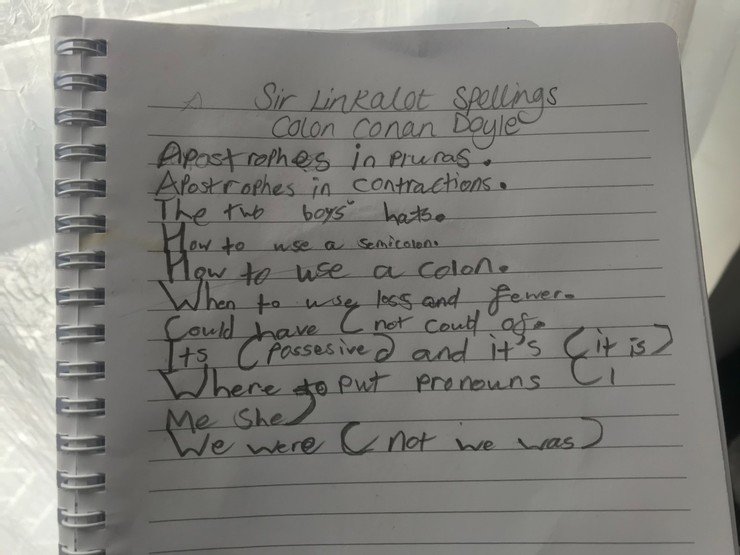 Sir Linkalot Spellings
Colon Conan Doyle
Apostrophes in pruras.
Apostrophes in contractions.
The two boys' hats.
How to use a semicolon.
How to use a colon.
When to use less and fewer.
Could have (not could of.
Its (Possesive) and it's (it is)
Where to put pronouns (I
Me She)
We were (not we was)